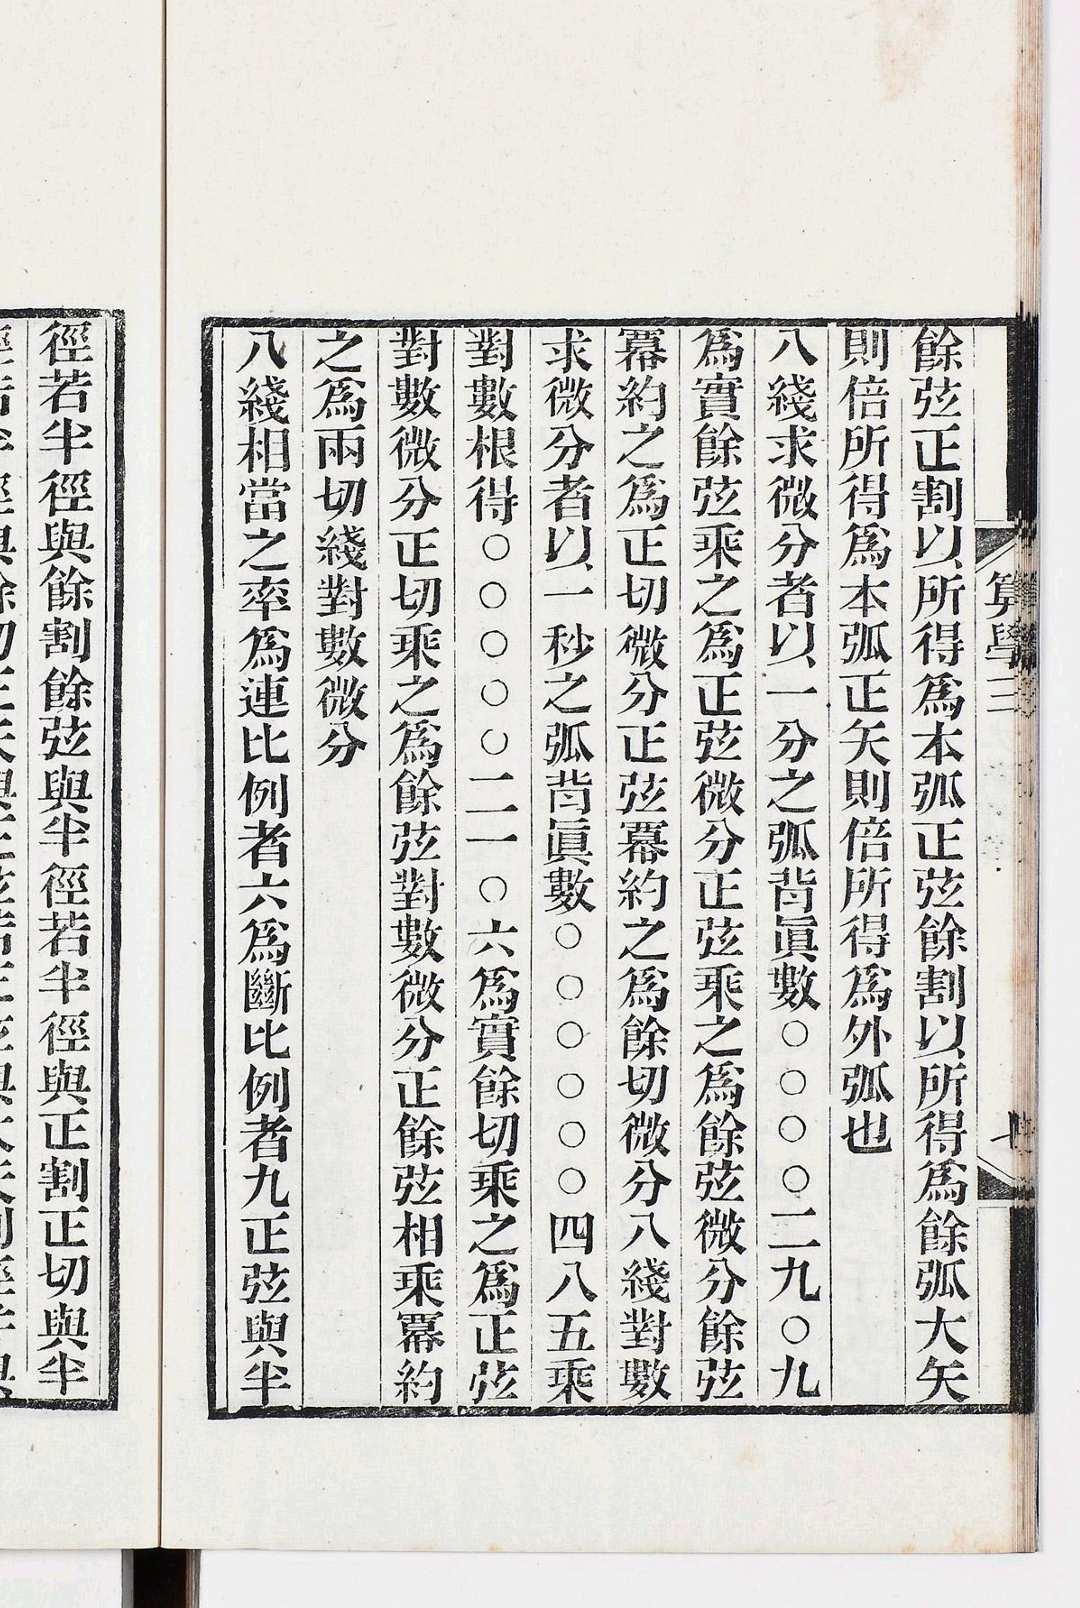 算學三
餘弦正割以所得爲本弧正弦餘割以所得爲餘弧大矢
則倍所得爲本弧正矢則倍所得爲外弧也
八綫求微分者以一分之弧背眞數○○○○二九○九
爲實餘弦乘之爲正弦微分正弦乘之爲餘弦微分餘弦
冪約之爲正切微分正弦冪約之爲餘切微分八綫對數
求微分者以一秒之弧背眞數○○○○○○四八五乘
對數根得○○○○○二一○六爲實餘切乘之爲正弦
對數微分正切乘之爲餘弦對數微分正餘弦相乘冪約
之爲兩切綫對數微分
八綫相當之率爲連比例者六爲斷比例者九正弦與半
徑若半徑與餘割餘弦與半徑若半徑與正割正切與半